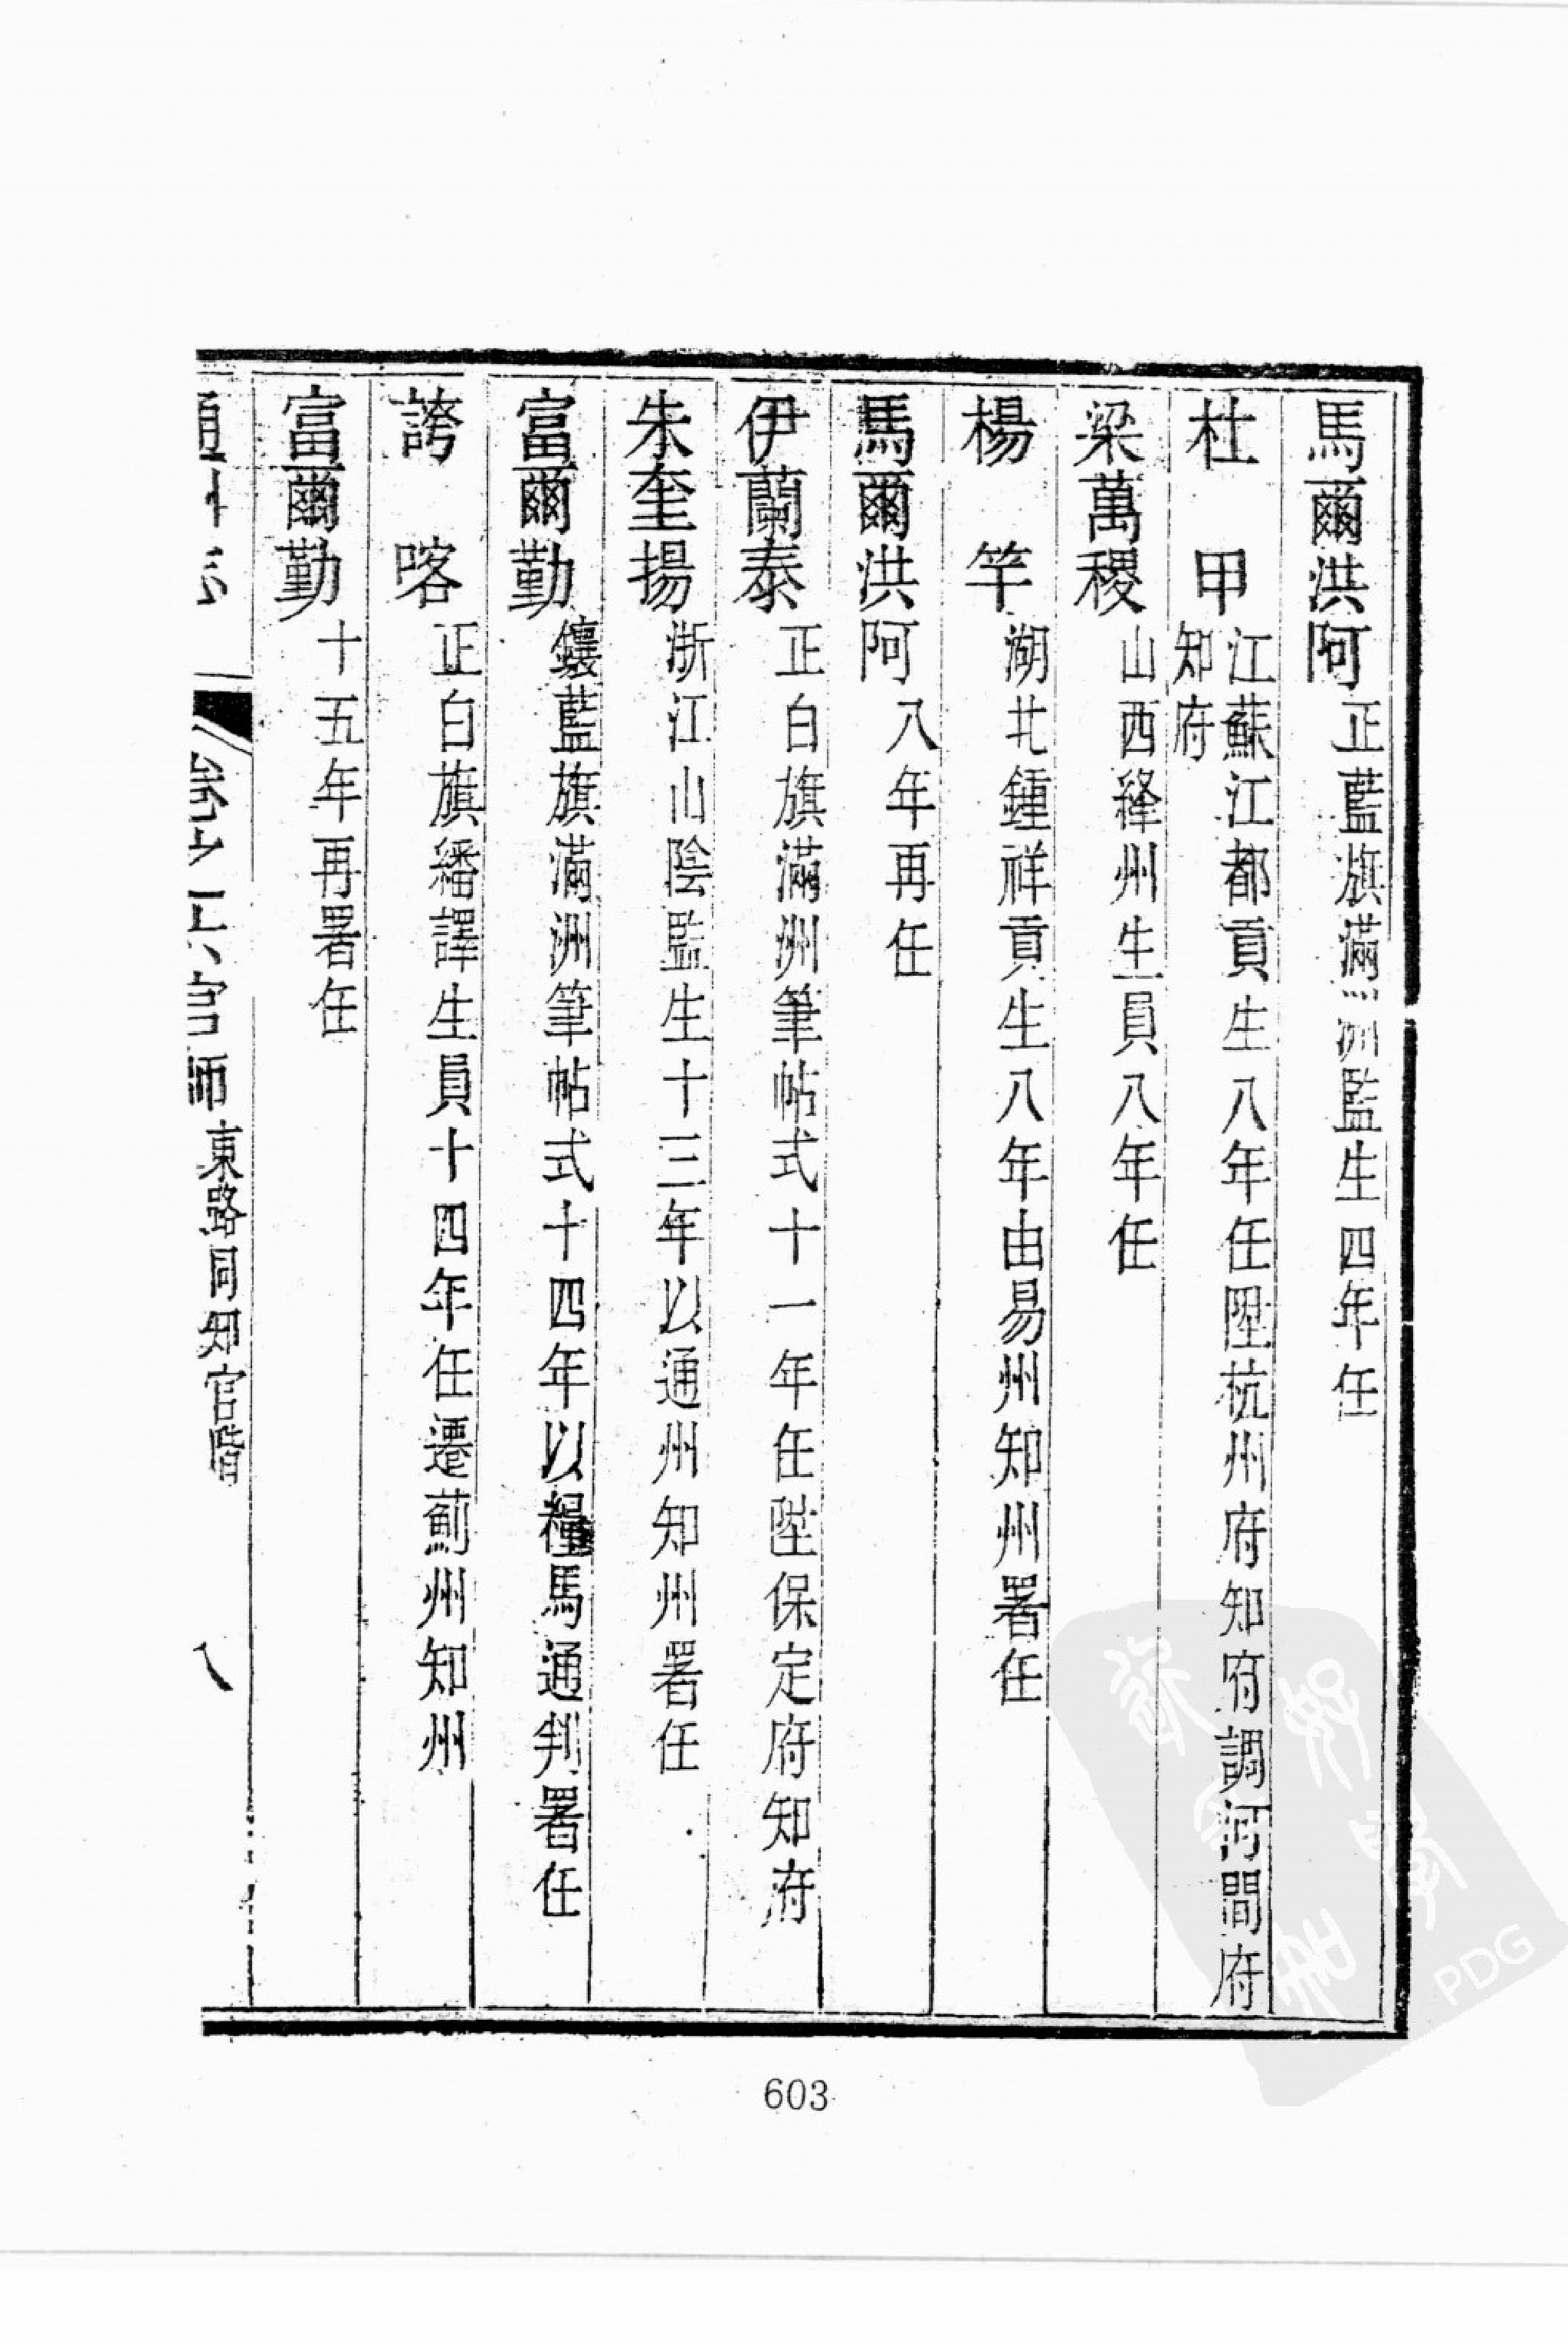 馬爾洪阿 正藍旗滿洲監生四年任
杜甲 江蘇江都貢生八年任陞杭州府知府調河間府
知府
梁萬稷 山西絳州生員八年任
楊竿 湖北鍾祥貢生八年由易州知州署任
馬爾洪阿 八年再任
伊蘭泰 正白旗滿洲筆帖式十一年任陞保定府知府
朱奎揚 浙江山陰監生十三年以通州知州署任
富爾勤 鑲藍旗滿洲筆帖式十四年以糧馬通判署任
誇喀 正白旗繙譯生員十四年任遷薊州知州
富爾勤 十五年再署任
官師 東路同知官階 八
603
PDG